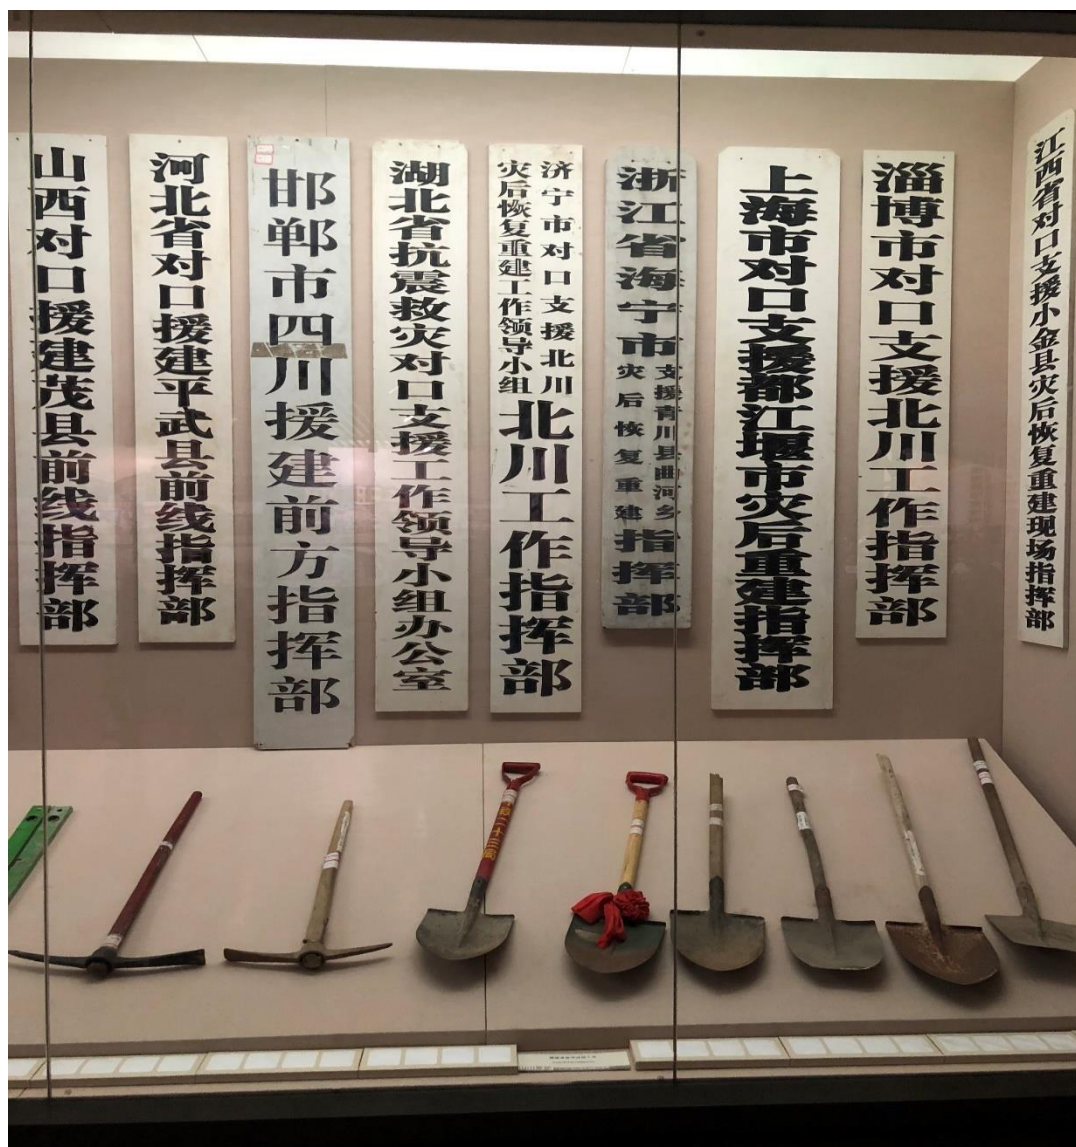 山西对口援建茂县前线指挥部
河北省对口援建平武县前线指挥部
邯郸市四川援建前方指挥部
湖北省抗震救灾对口支援工作领导小组办公室
济宁市对口支援北川
灾后恢复重建工作领导小组
北川工作指挥部
浙江省海宁市
支援青川县曲河乡
灾后恢复重建
指挥部
上海市对口支援都江堰市灾后重建指挥部
淄博市对口支援北川工作指挥部
江西省对口支援小金县灾后恢复重建现场指挥部